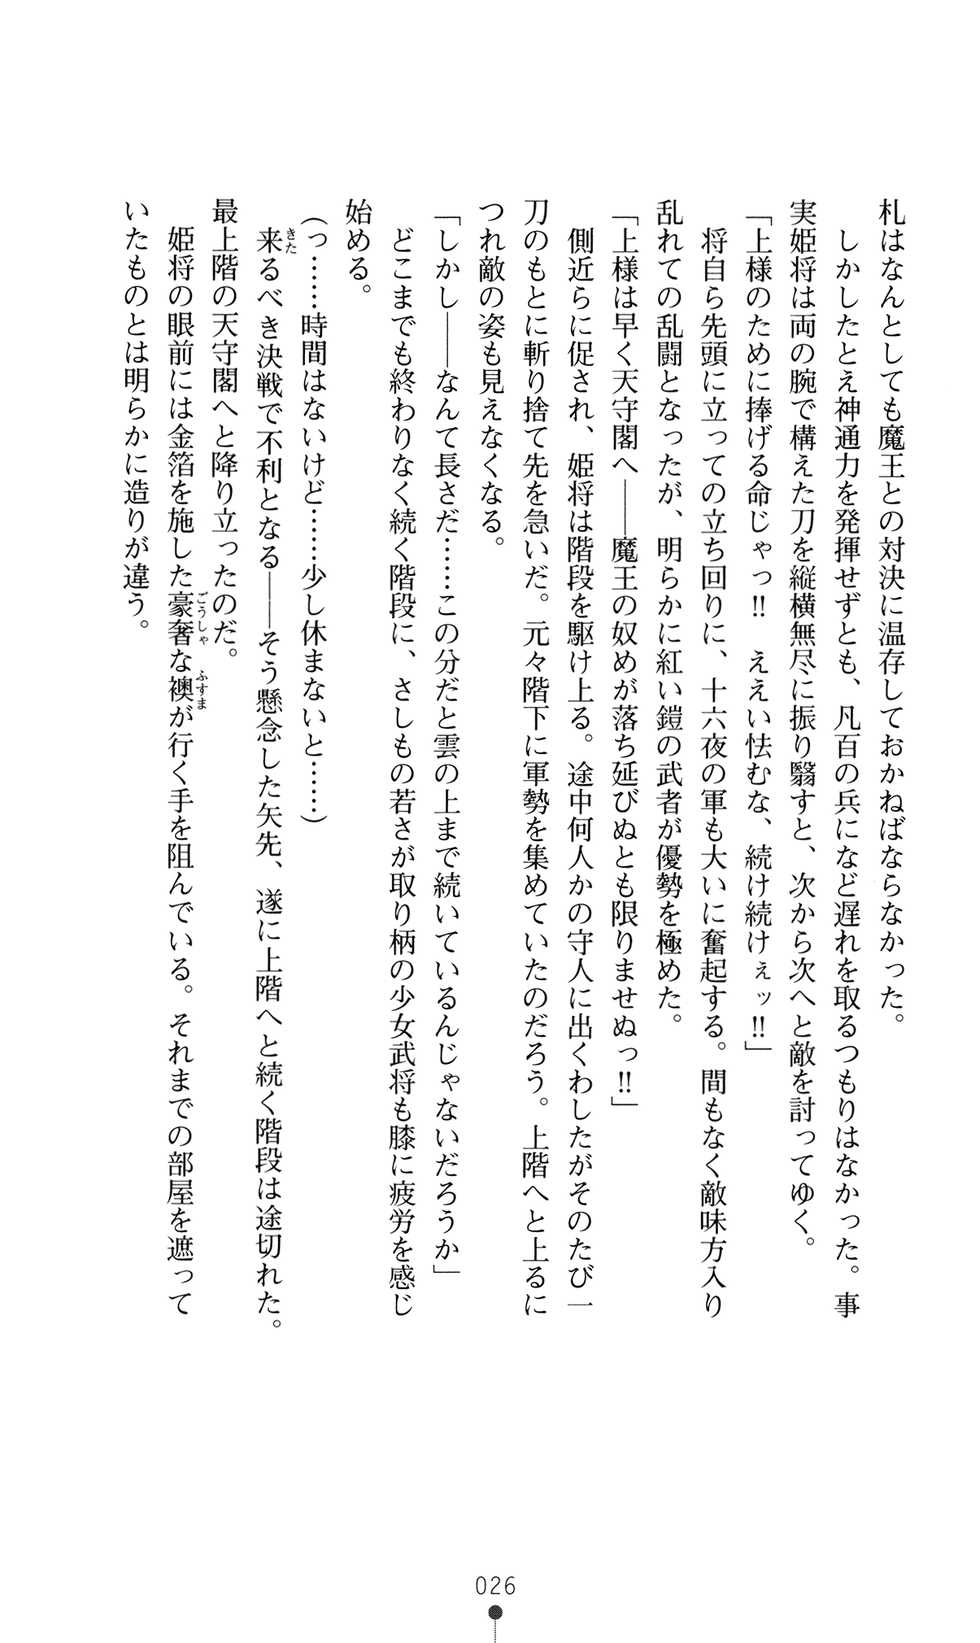 札はなんとしても魔王との対決に温存しておかねばならなかった。
　しかしたとえ神通力を発揮せずとも、凡百の兵になど遅れを取るつもりはなかった。事
実姫将は両の腕で構えた刀を縦横無尽に振り翳すと、次から次へと敵を討ってゆく。
「上様のために捧げる命じゃっ‼　ええい怯むな、続け続けぇッ‼」
　将自ら先頭に立っての立ち回りに、十六夜の軍も大いに奮起する。間もなく敵味方入り
乱れての乱闘となったが、明らかに紅い鎧の武者が優勢を極めた。
「上様は早く天守閣へ――魔王の奴めが落ち延びぬとも限りませぬっ‼」
　側近らに促され、姫将は階段を駆け上る。途中何人かの守人に出くわしたがそのたび一
刀のもとに斬り捨て先を急いだ。元々階下に軍勢を集めていたのだろう。上階へと上るに
つれ敵の姿も見えなくなる。
「しかし――なんて長さだ……この分だと雲の上まで続いているんじゃないだろうか」
　どこまでも終わりなく続く階段に、さしもの若さが取り柄の少女武将も膝に疲労を感じ
始める。
（っ……時間はないけど……少し休まないと……）
　来るべき決戦で不利となる――そう懸念した矢先、遂に上階へと続く階段は途切れた。
きた
最上階の天守閣へと降り立ったのだ。
　姫将の眼前には金箔を施した豪奢な襖が行く手を阻んでいる。それまでの部屋を遮って
ごうしゃ　ふすま
いたものとは明らかに造りが違う。
026